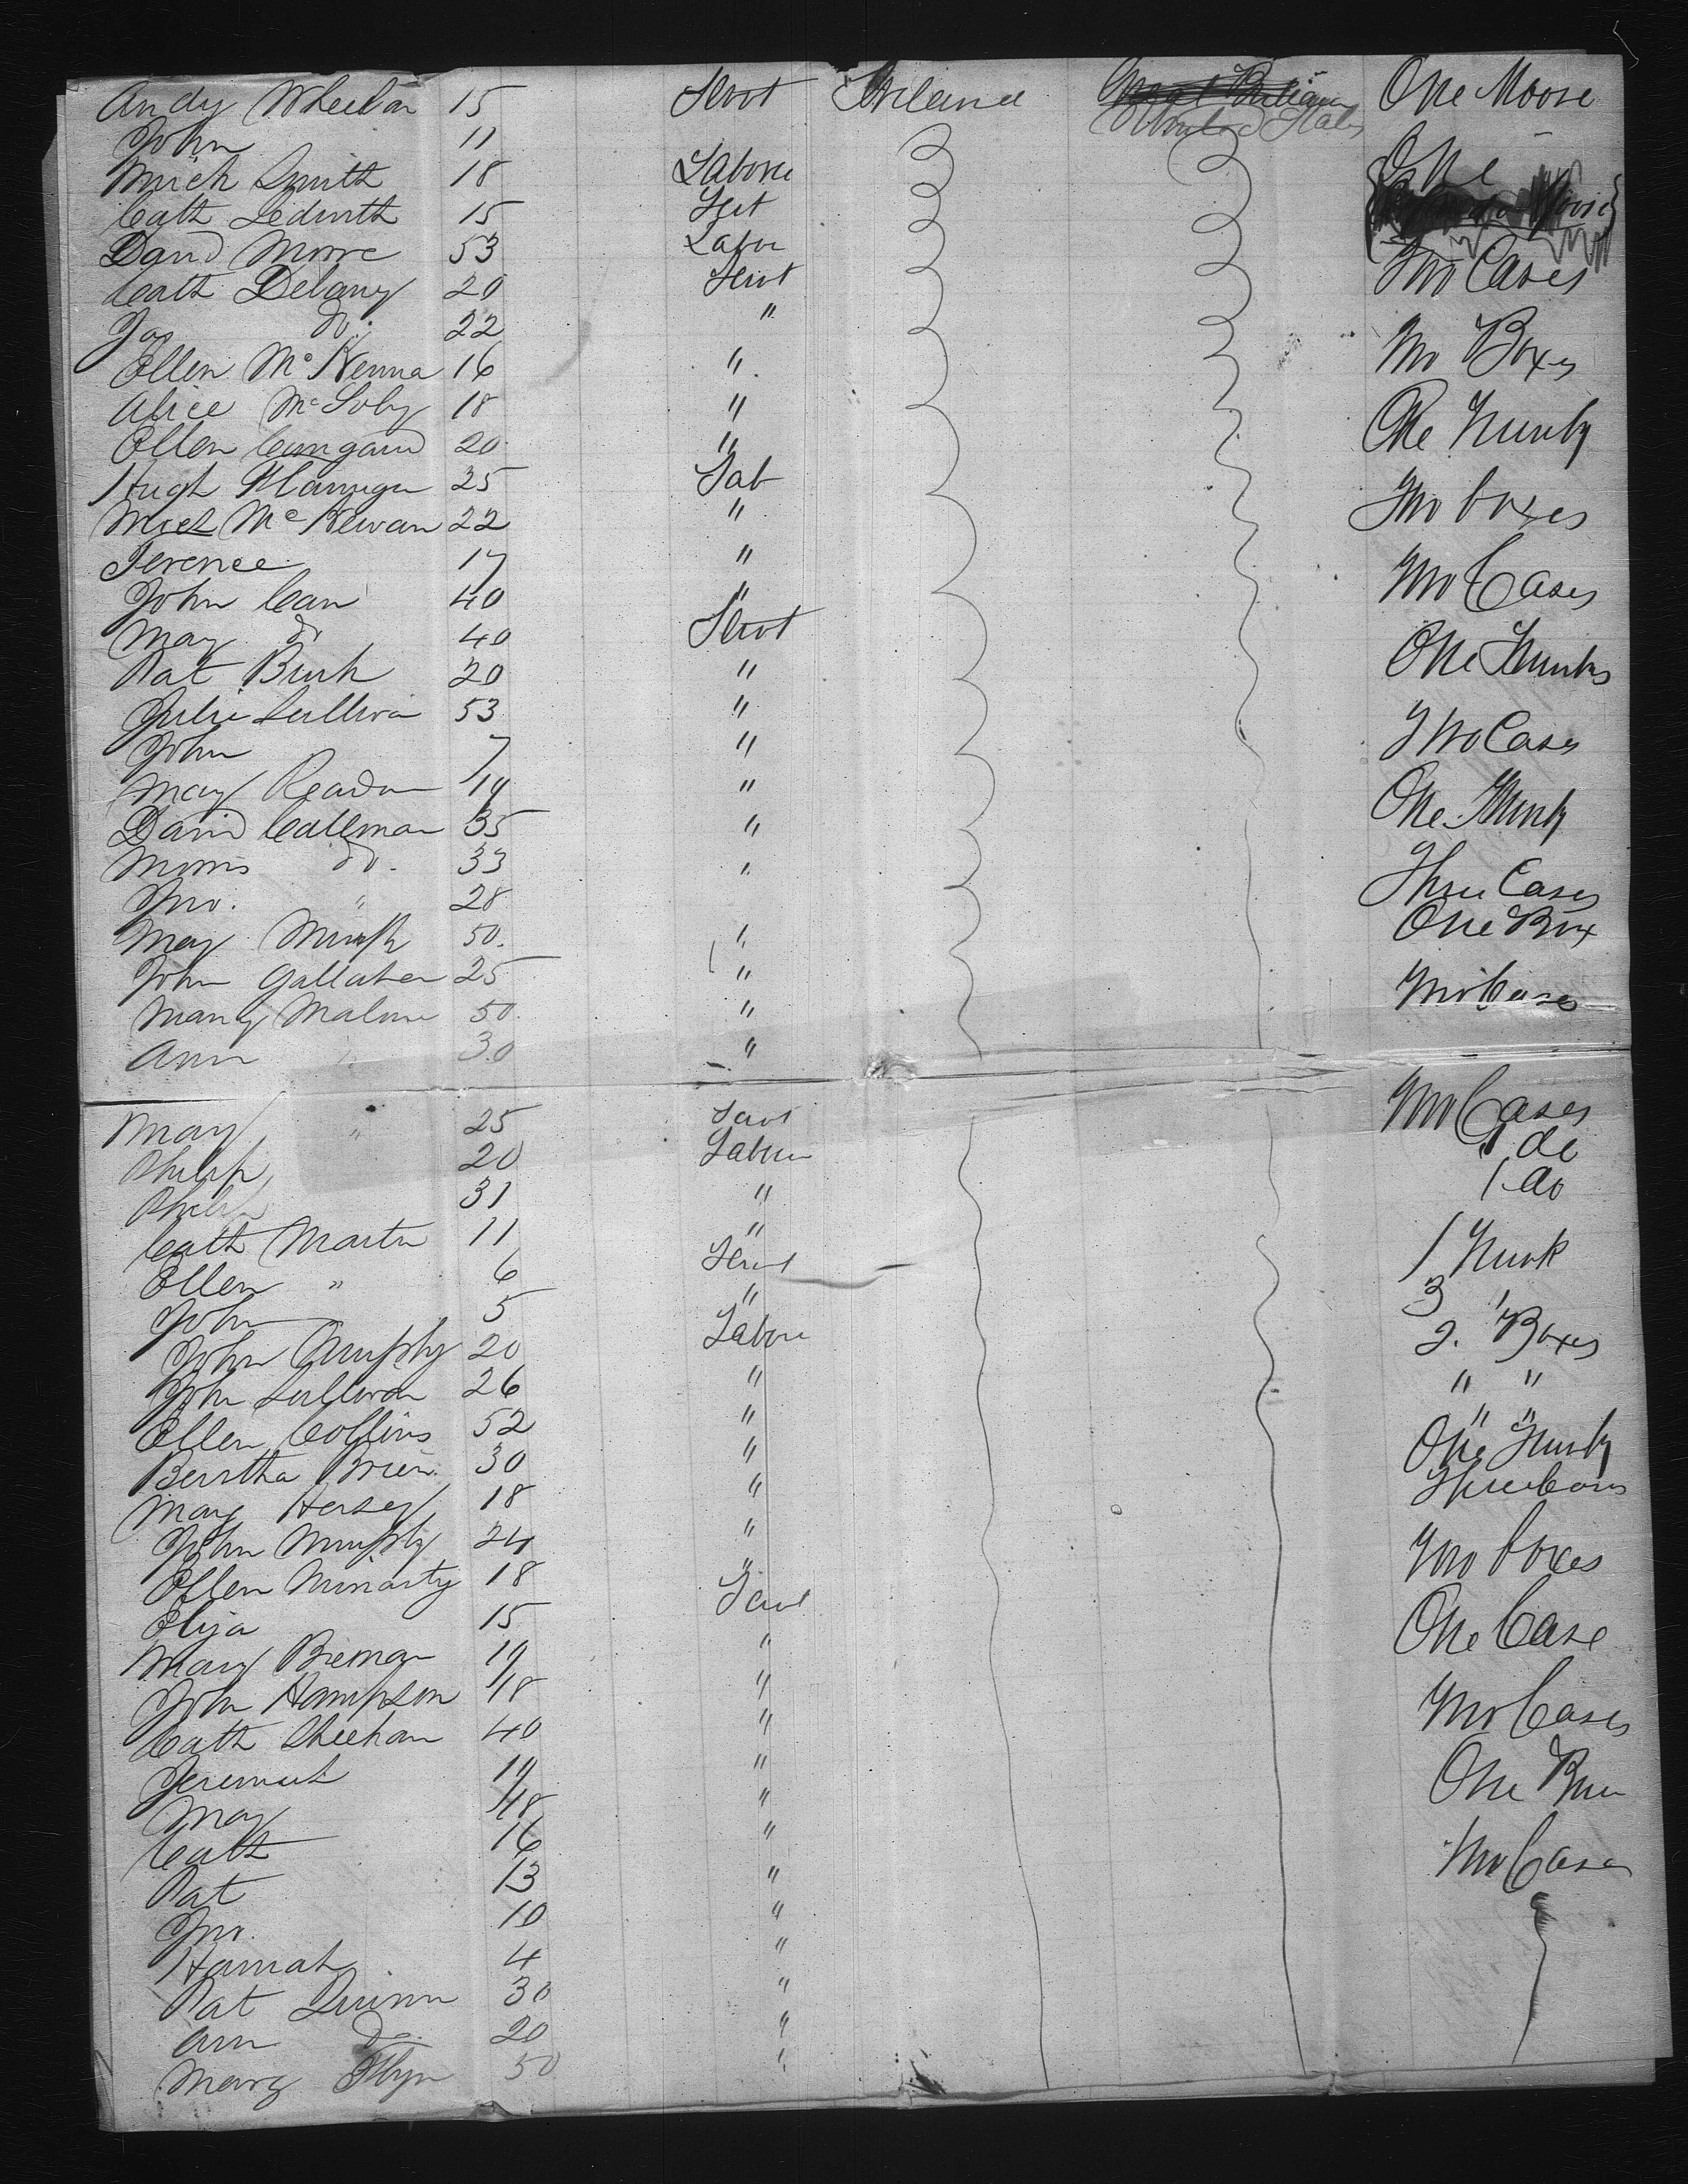 Andy Wheelan 15 Servt Ireland United States One
John 11
Mich Smith 18 Labore One
Cath Ledwith 15 Sert
David Moore 53 Labor
Cath Delany 20 Servt Two Cases
Jas do. 22 "
Ellen McKenna 16 " Two Boxes
Alice 18 "
Ellen 20 " One Trunk
Hugh Flanigan 25 Lab
Mich McKewan 22 " Two boxes
Terence 17 "
John Carr 40 " Two Cases
May do 40 Servt
Pat Burk 20 " One Trunks
Julia Sullivan 53 "
John 7 " Two Cases
May Readon 19 "
David Calleman 35 " One Trunk
Morris do. 33 "
Jno. " 28 Three Cases
May Murph 50. " One Box
John Gallaher 25 "
Mary Malone 50. " Two Cases
Ann " 30 "
May " 25 Servt Two Cases
Philip 20 Labor 1 do
Philip 31 " 1 do
Cath Martin 11 "
Ellen " 6 Servt 1 Trunk
John 5 " 3 "
John Murphy 20 Labore 2. Boxes
John Sullivan 26 " " "
Ellen Collins 52 " " "
Berstha Brien 30 " One Trunk
May Hersey 18 " Three
John Murphy 24 "
Ellen 18 " Two boxes
Eliza 15 Servt
Mary Brenan 19 " One Case
John Hampson 18 "
Cath Sheehan 40 " Two Cases
Jeremiah 19 "
May 18 " One
Cath 16 "
Pat 13 " Two Cases
Jno. 10 "
Hannah 4 "
Pat Quinn 30 "
Ann Do. 20 "
Mary Flyn 50 "